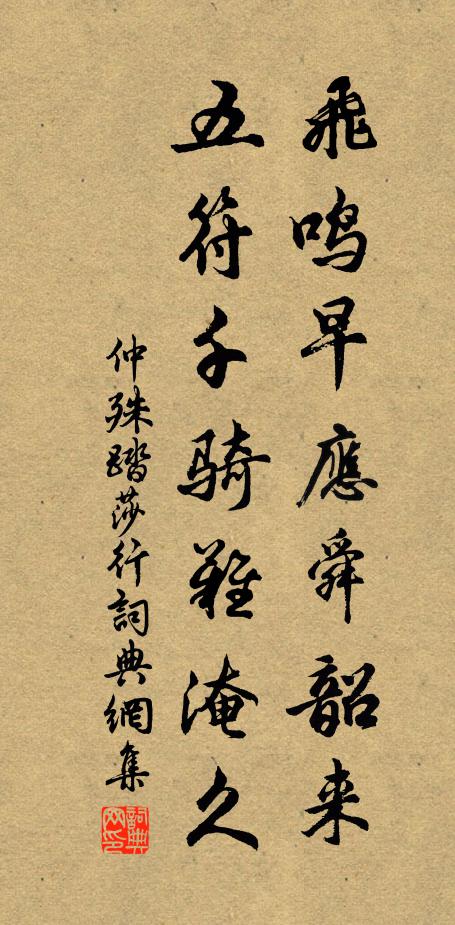 飛鳴早應舜韶来
五符千騎難淹久
仲殊踏莎行詞典網集
詞典网印